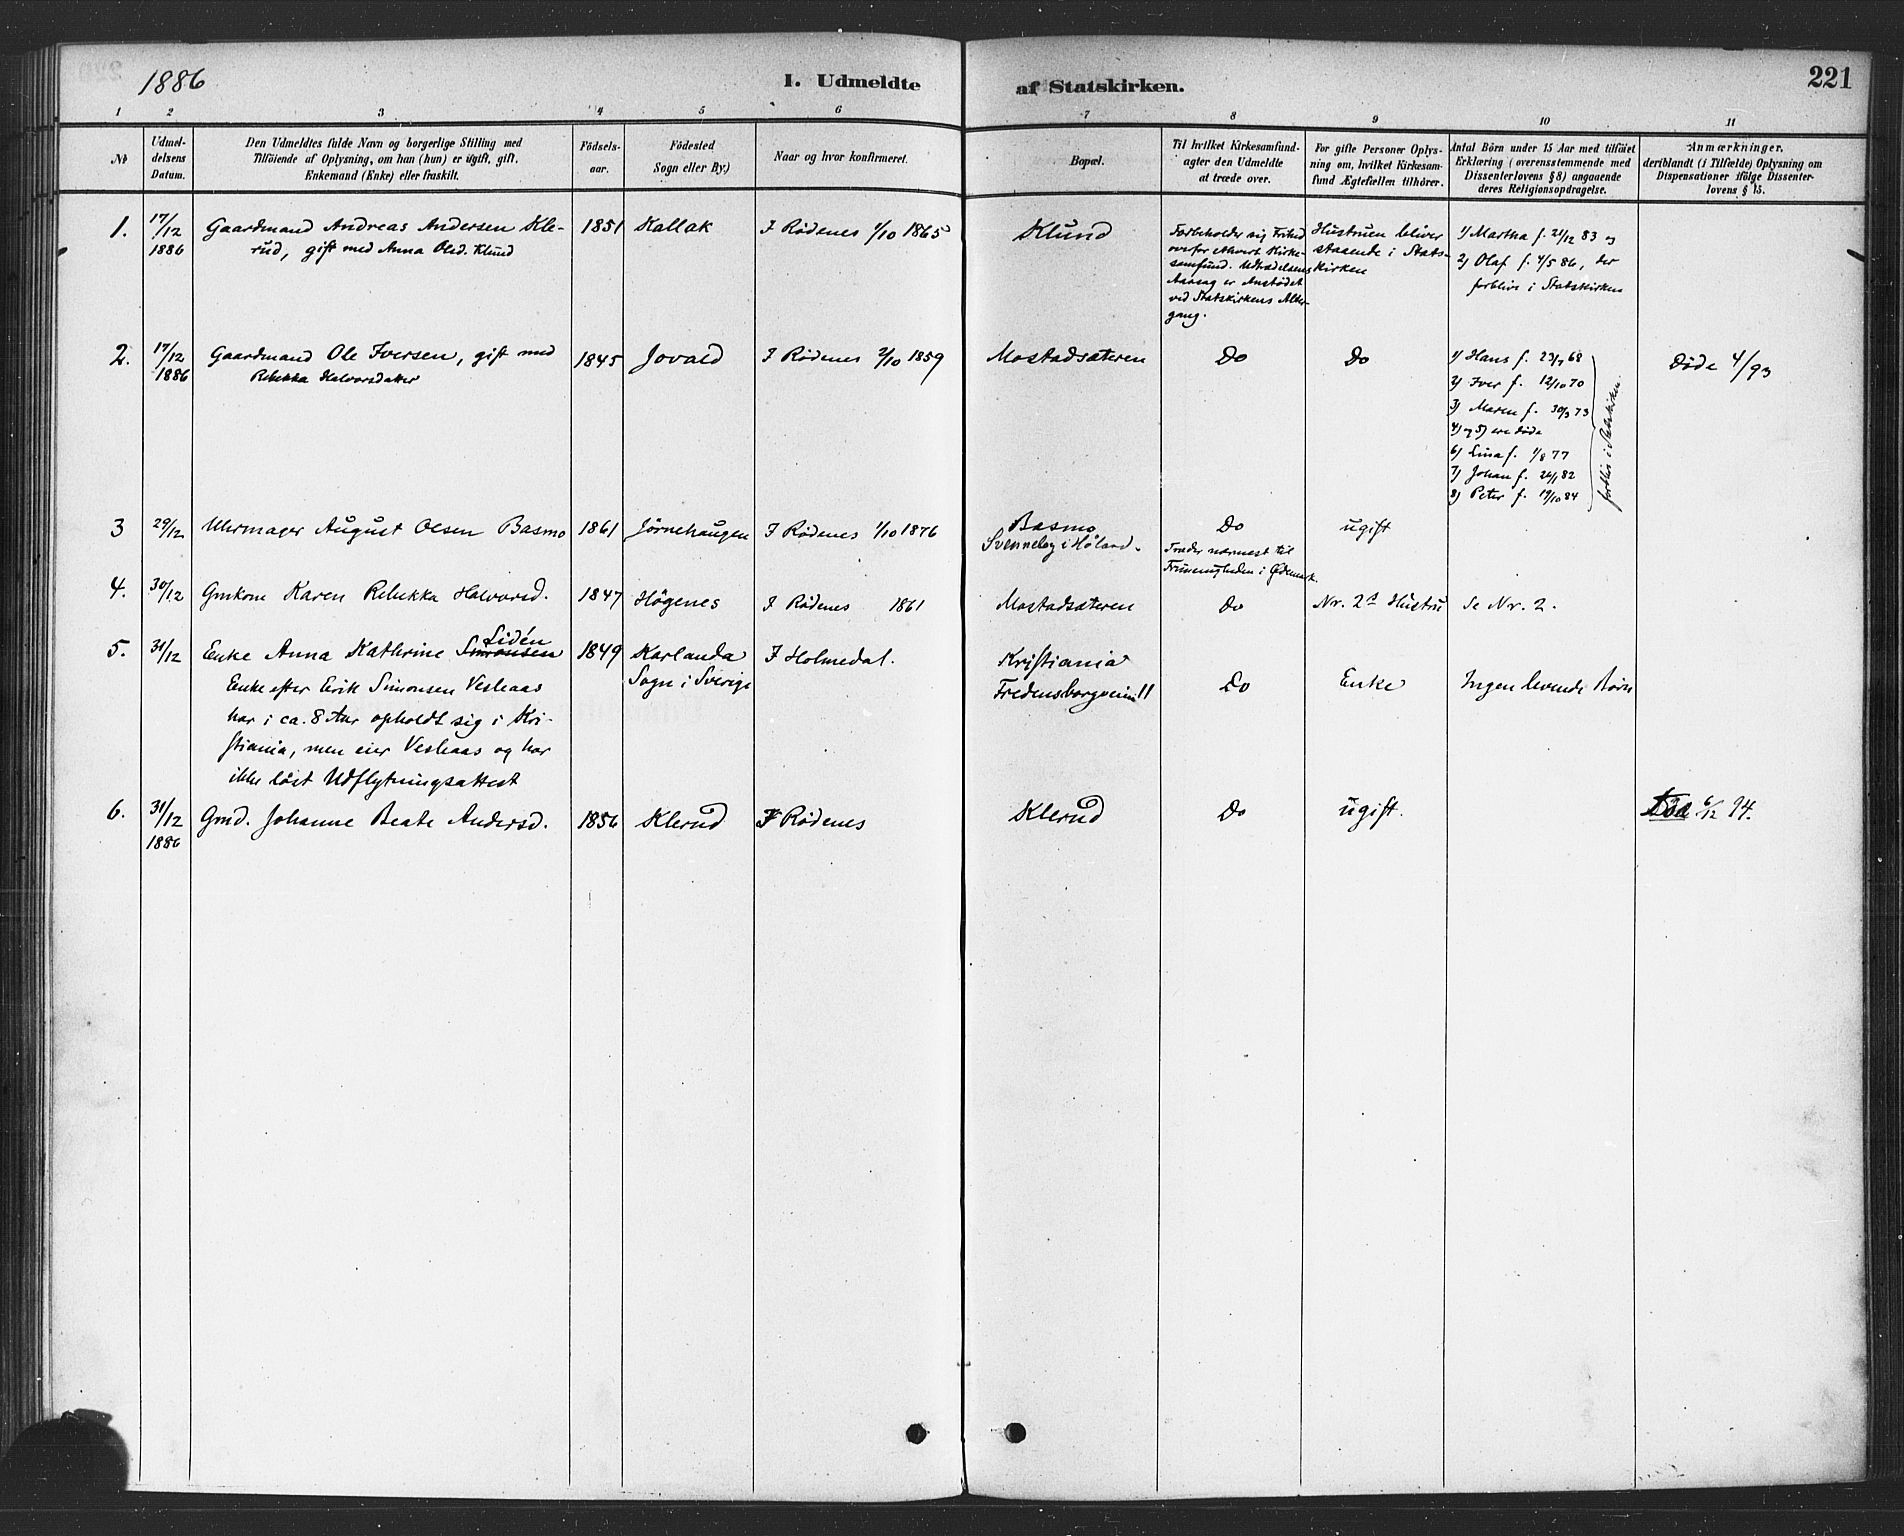 1886
I. Udmeldte af Statskirken.
221
1 2 3 4 5 6 7 8 9 10 11
No
Udmel-
delsens
Datum.
Den Udmeldtes fulde Navn og borgerlige Stilling med
Tilföiende af Oplysning, om han (hun) er ugift, gift.
Enkemand (Enke) eller fraskilt.
Födsels-
aar.
Födested
Sogn eller By.)
Naar og hvor konfirmeret.
Bopæl.
Til hvilket Kirkesamfund-
agter den Udmeldte
at træde over.
For gifte Personer Oplys-
ning om, hvilket Kirkesam-
fund Ægtefællen tilhörer.
Antal Börn under 15 Aar med tilföiet
Erklæring (overensstemmende med
Dissenterlovens § 8) angaaende
deres Religionsopdragelse.
Anmærkninger,
deriblandt (i Tilfælde) Oplysning om
Dispensationer ifölge Dissenter-
lovens § 15.
1.
17/12
1886
Gaardmand Andreas Andersen Kle-
rud, gift med Anna Olsd. Klund
1851
Kallak
I Rödenes 1/10 1865
Klund
Forbeholder sig Frihed
ovefor ethvert Kirke-
samfund. Udtrædelsens
Aarsag er Anstødet
ved Statskirkens Alter-
gang.
Hustruen bliver
staaende i Stats-
kirken
1) Martha f. 21/12 83 og
2) Olaf f. 4/5 86, der
forblive i Statskirken
2.
17/12
1886
Gaardmand Ole Iversen, gift med
Rebekka Halvorsdatter
1845
Jovald
I Rødenes 2/10 1859
Mostadsæteren
Do
Do
1) Hans f. 23/7 68
2) Iver f. 12/10 70
3) Maren f. 30/3 73
4) og 5) ere døde
6) Lina f. 1/8 77
7) Johan f. 24/1 82
8) Peter f. 19/10 84
forbliv i Statskirken.
Døde 4/93
3
29/12
Uhrmager August Olsen Basmo
1861
Jörnehaugen
I Rødenes 1/10 1876
Basmo
Svenneby i Høland.
Do
Træder nærmest til
Frimenigheden i Ødemark.
ugift
4.
30/12
Gmkone Karen Rebekka Halvorsd.
1847
Högenes
I Rødenes 1861
Mostadsæteren
Do
Nr. 2s Hustru
Se Nr. 2.
5.
31/12
Lidén
Enke Anna Kathrine Simonsen
Enke efter Erik Simonsen Vesleaas
har i ca. 8 Aar opholdt sig i Kri-
stiania, men eier Vesleaas og har
ikke løst Udflytningsattest
1849
Karlanda
Sogn i Sverige
I Holmedal.
Kristiania
Fredensborgveien 11
Do
Enke
Ingen levende Børn
6.
31/12
1886
Gmd. Johanne Beate Andersd.
1856
Klerud
I Rødenes
Klerud
Do
ugift.
Død 6/12 94.